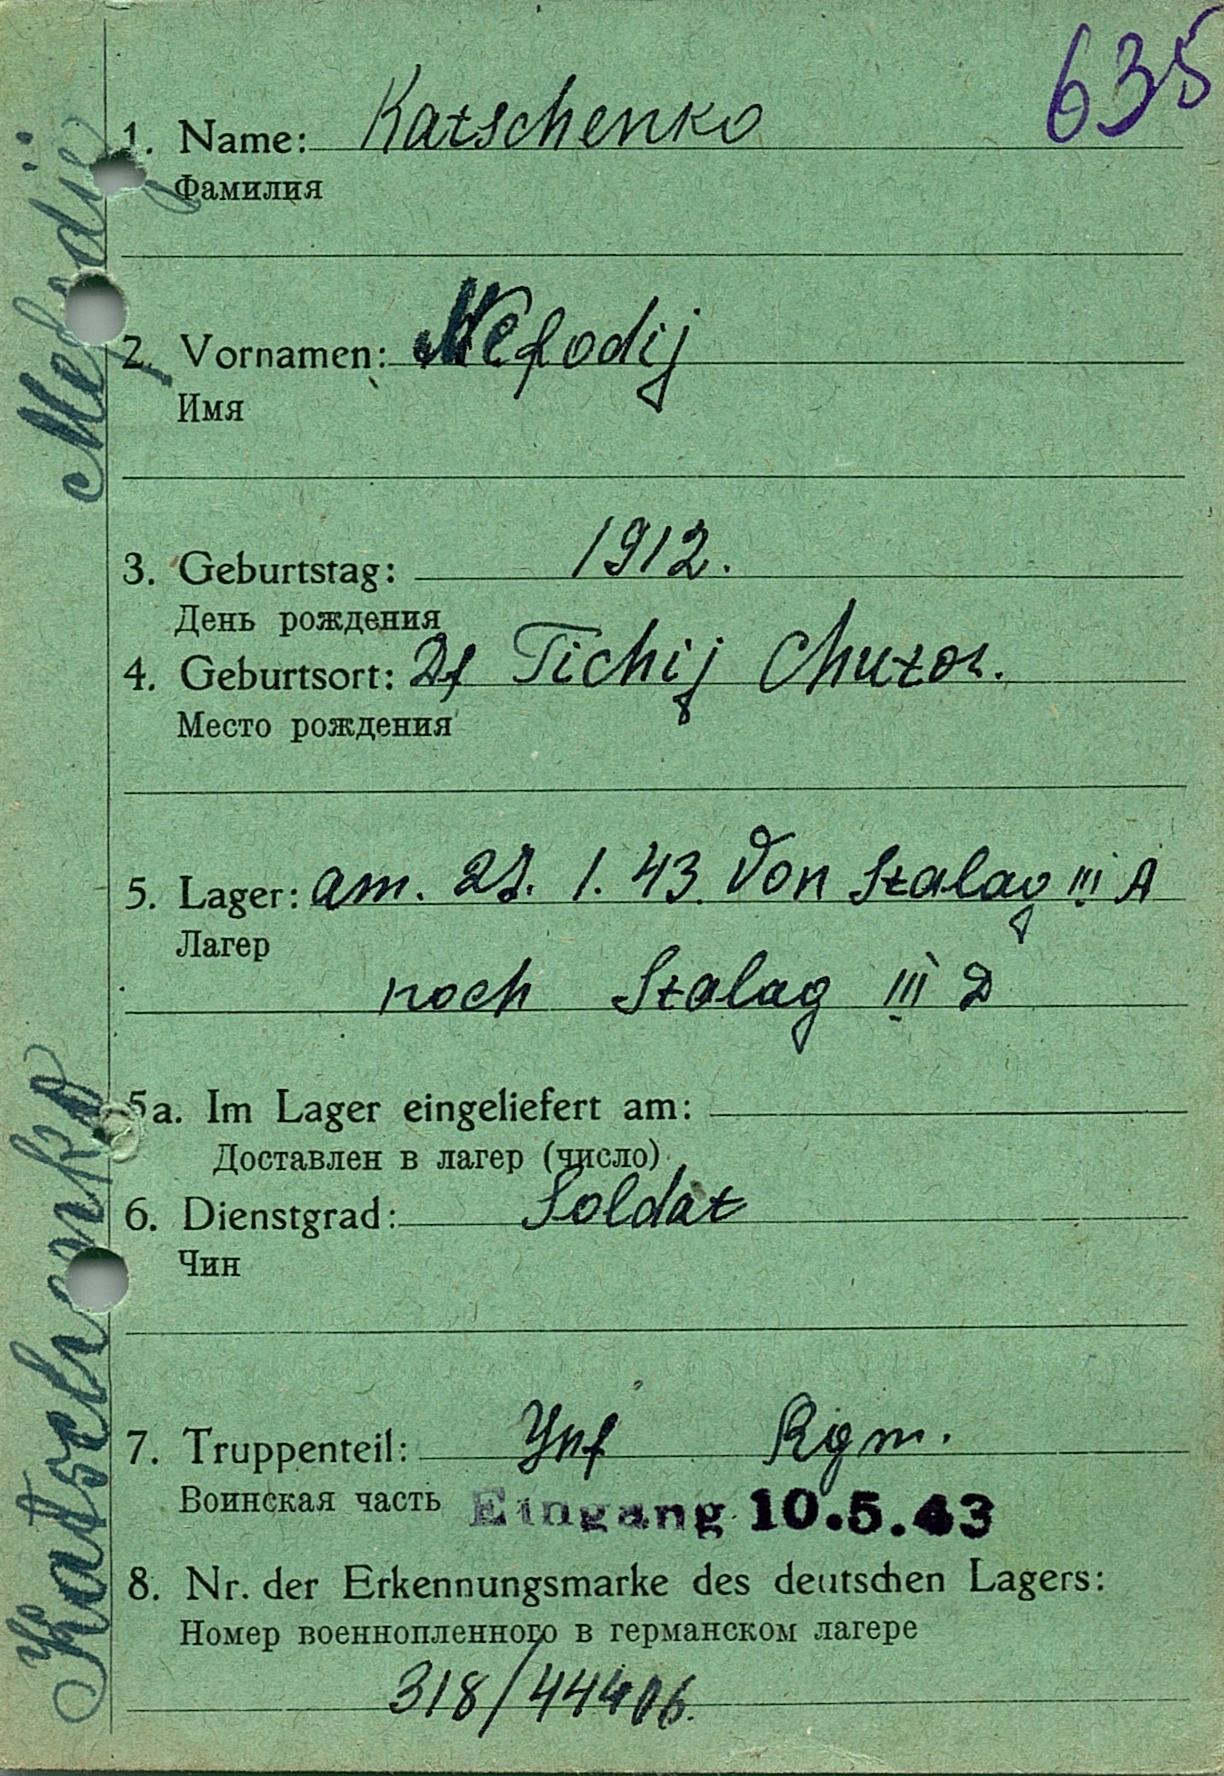 635
1. Name: Katschenko
Фамилия
2. Vornamen: Mefodij
Имя
3. Geburtstag: 1912.
День рождения
4. Geburtsort: Df Tichij Chutor.
Место рождения
5. Lager: am. 27. 1. 43. Von Stalag III A
Лагер
noch Stalag III D
5a. Im Lager eingeliefert am:
Доставлен в лагер (число)
6. Dienstgrad: Soldat
Чин
7. Truppenteil: Ynf Rgm.
Воинская часть Eingang 10.5.43
8. Nr. der Erkennungsmarke des deutschen Lagers:
Номер военнопленного в германском лагере
318/44406.
Katschenko Mefodij